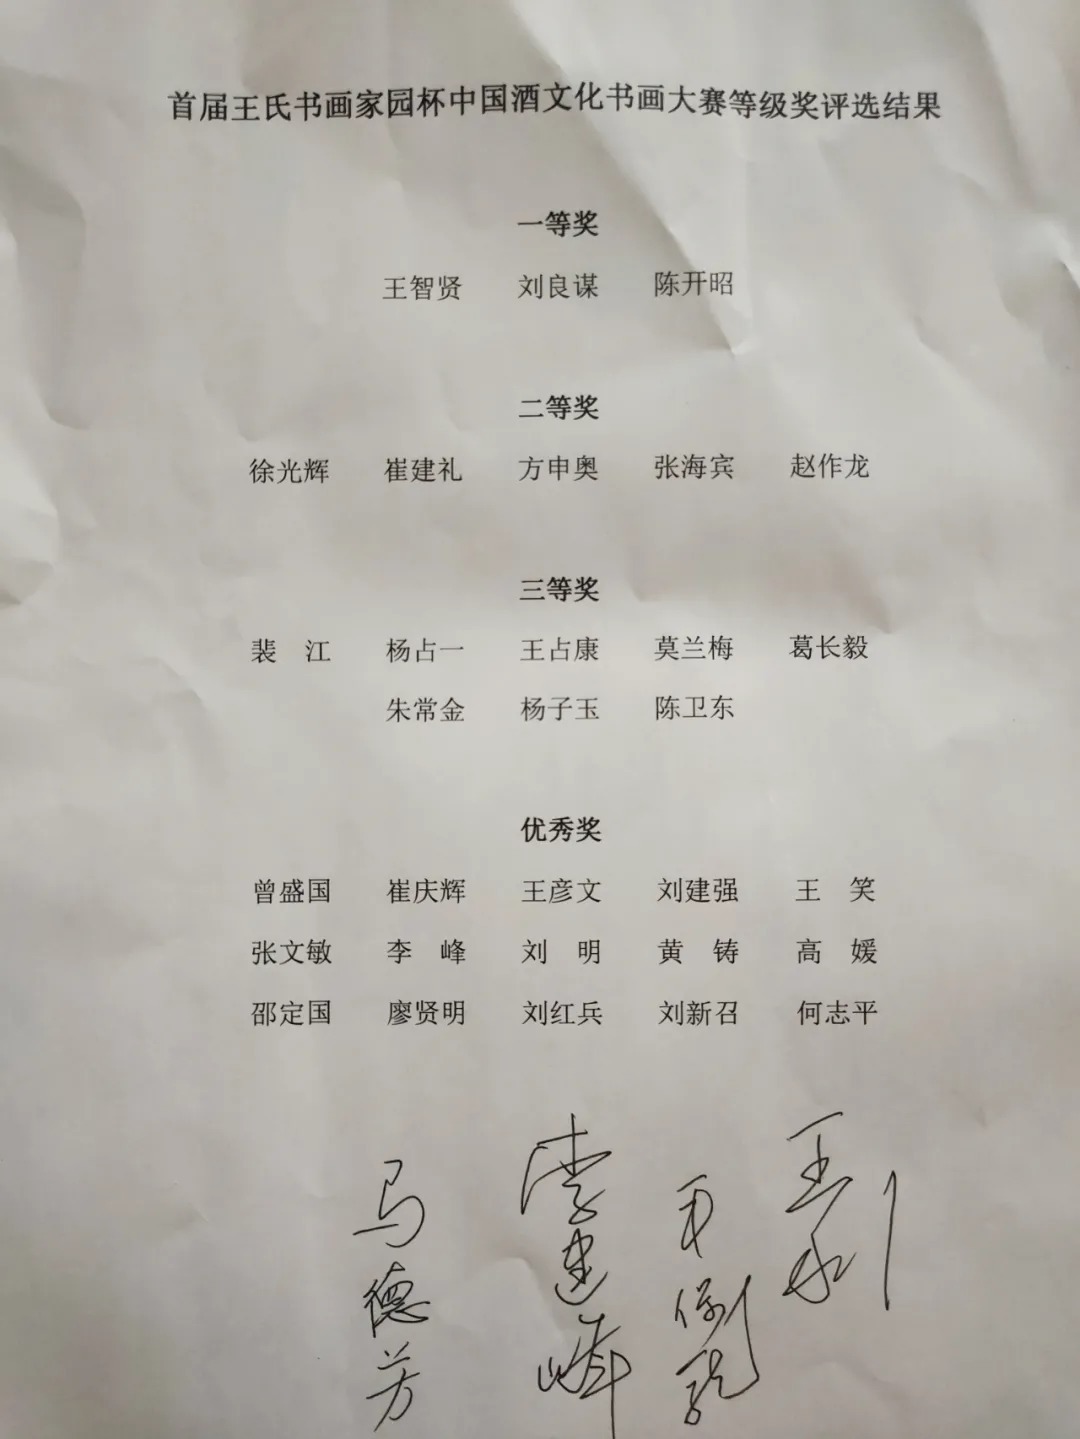 首届王氏书画家园杯中国酒文化书画大赛等级奖评选结果
一等奖
王智贤 刘良谋 陈开昭
二等奖
徐光辉 崔建礼 方申奥 张海宾 赵作龙
三等奖
裴 江 杨占一 王占康 莫兰梅 葛长毅
朱常金 杨子玉 陈卫东
优秀奖
曾盛国 崔庆辉 王彦文 刘建强 王 笑
张文敏 李 峰 刘 明 黄 铸 高 媛
邵定国 廖贤明 刘红兵 刘新召 何志平
马德芳
李建峰